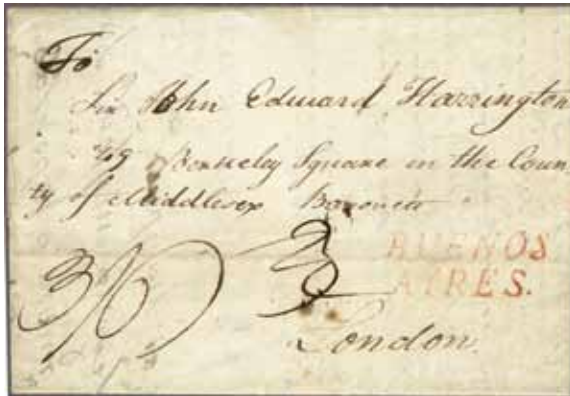 To
Sir John Edward Harrington
49 Berkeley Square in the Coun
ty of Middlesex Baronett
3/6 3
BUENOS
AYRES.
London.